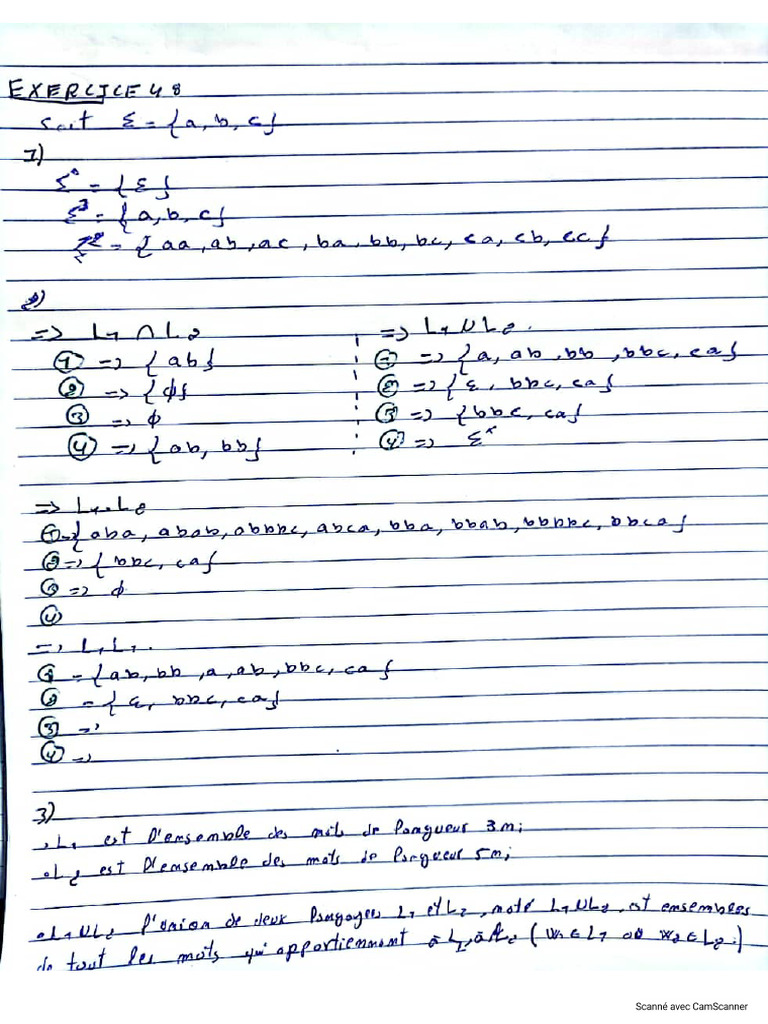 EXERCICE 48
soit Ɛ = {a, b, c}
1)
Ɛ⁰ = {Ɛ}
Ɛ¹ = {a, b, c}
Σ² = {aa, ab, ac, ba, bb, bc, ca, cb, cc}
2)
=> L1 ∩ L2
① => {ab}
② => {ϕ}
③ => ϕ
④ => {ab, bb}
=> L1 U L2.
① => {a, ab, bb, bbc, ca}
② => {Ɛ, bbc, ca}
③ => {bbc, ca}
④ => Ɛ*
=> L1.L2
① => {aba, abab, abbbc, abca, bba, bbab, bbbbc, bbca}
② => {bbc, ca}
③ => ϕ
④
=> L1L1.
① = {ab, bb, a, ab, bbc, ca}
② = {Ɛ, bbc, ca}
③ =>
④ =>
3)
• L1 est l'ensemble des mots de longueur 3n;
• L2 est l'ensemble des mots de longueur 5n;
• L1 U L2 l'union de deux langages L1 et L2, noté L1 U L2, est ensembles
de tout les mots qui appartiennent à L1, à L2 (W1 ∈ L1 ou W2 ∈ L2.)
Scanné avec CamScanner